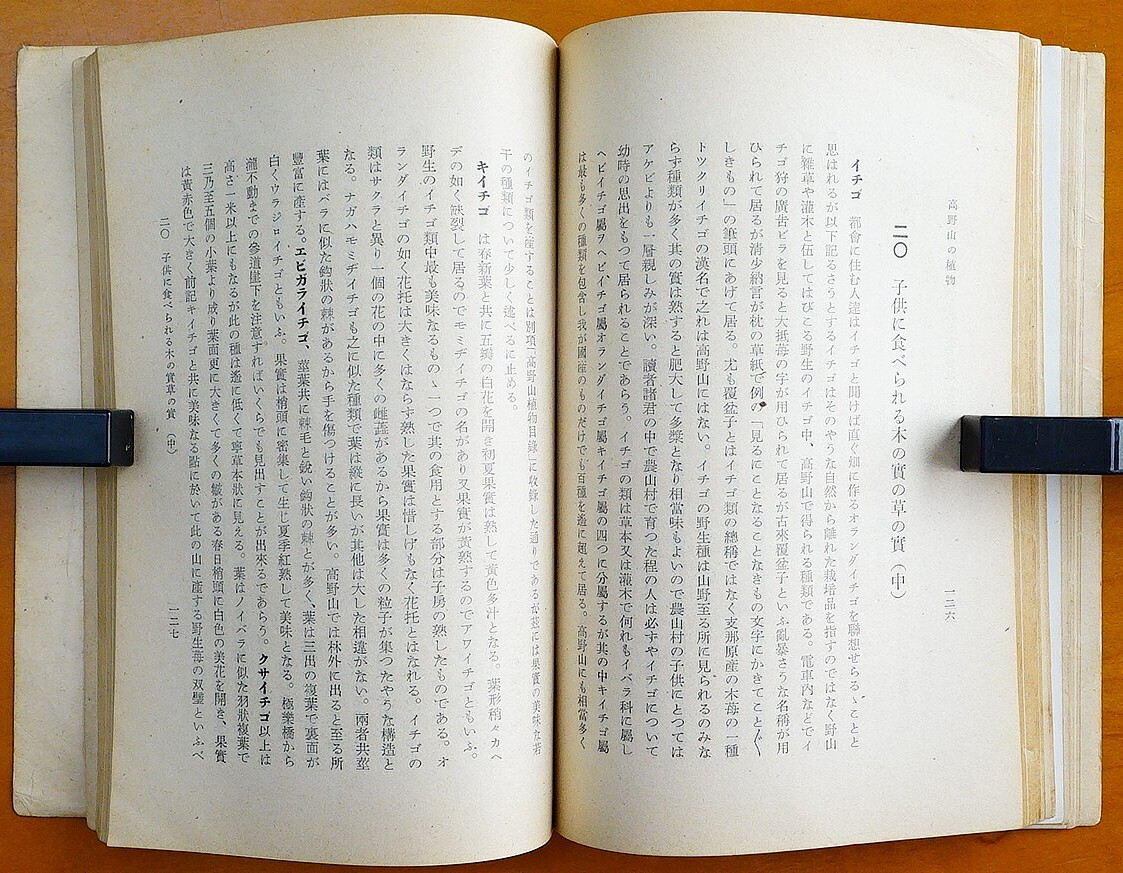 高野山の植物
一二六
二〇 子供に食べられる木の實の草の實 (中)
イチゴ 都會に住む人達はイチゴと聞けば直ぐ畑に作るオランダイチゴを聯想せらるゝことと
思はれるが以下記るさうとするイチゴはそのやうな自然から離れた栽培品を指すのではなく野山
に雜草や灌木と伍してはびこる野生のイチゴ中、高野山で得られる種類である。電車内などでイ
チゴ狩の廣告ビラを見ると大抵苺の字が用ひられて居るが古來覆盆子といふ亂暴さうな名稱が用
ひられて居るが清少納言が枕の草紙で例の「見るにことなることなきもの文字にかきてこと〲
しきもの」の筆頭にあげて居る。尤も覆盆子とはイチゴ類の總稱ではなく支那原産の木苺の一種
トツクリイチゴの漢名で之れは高野山にはない。イチゴの野生種は山野至る所に見られるのみな
らず種類が多く其の實は熟すると肥大して多漿となり相當味もよいので農山村の子供にとつては
アケビよりも一層親しみが深い。讀者諸君の中で農山村で育つた程の人は必ずやイチゴについて
幼時の思出をもつて居られることであらう。イチゴの類は草本又は灌木で何れもイバラ科に屬し
ヘビイチゴ屬ヲヘビイチゴ屬オランダイチゴ屬キイチゴ屬の四つに分屬するが其の中キイチゴ屬
は最も多くの種類を包含し我が國産のものだけでも百種を遙に超えて居る。高野山にも相當多く
のイチゴ類を産することは別項「高野山植物目錄」に收錄した通りであるが茲には果實の美味な若
干の種類について少しく述べるに止める。
キイチゴ は春新葉と共に五瓣の白花を開き初夏果實は熟して黃色多汁となる。葉形稍々カヘ
デの如く缺裂して居るのでモミヂイチゴの名があり又果實が黃熟するのでアワイチゴともいふ。
野生のイチゴ類中最も美味なるものゝ一つで其の食用とする部分は子房の熟したものである。オ
ランダイチゴの如く花托は大きくはならず熟した果實は惜しげもなく花托とはなれる。イチゴの
類はサクラと異り一個の花の中に多くの雌蕋があるから果實は多くの粒子が集つたやうな構造と
なる。ナガハモミヂイチゴも之に似た種類で葉は縱に長いが其他は大した相違がない。兩者共莖
葉にはバラに似た鈎狀の棘があるから手を傷つけることが多い。高野山では林外に出ると至る所
豐富に産する。エビガライチゴ、莖葉共に棘毛と銳い鈎狀の棘とが多く、葉は三出の複葉で裏面が
白くウラジロイチゴともいふ。果實は梢頭に密集して生じ夏季紅熟して美味となる。極樂橋から
瀧不動までの參道崖下を注意すればいくらでも見出すことが出來るであらう。クサイチゴ以上は
高さ一米以上にもなるが此の種は遙に低くて寧草本狀に見える。葉はノイバラに似た羽狀複葉で
三乃至五個の小葉より成り葉面更に大きくて多くの皺がある春日梢頭に白色の美花を開き、果實
は黃赤色で大きく前記キイチゴと共に美味なる點に於いて此の山に産する野生苺の双璧といふべ
二〇 子供に食べられる木の實草の實 (中)
一二七